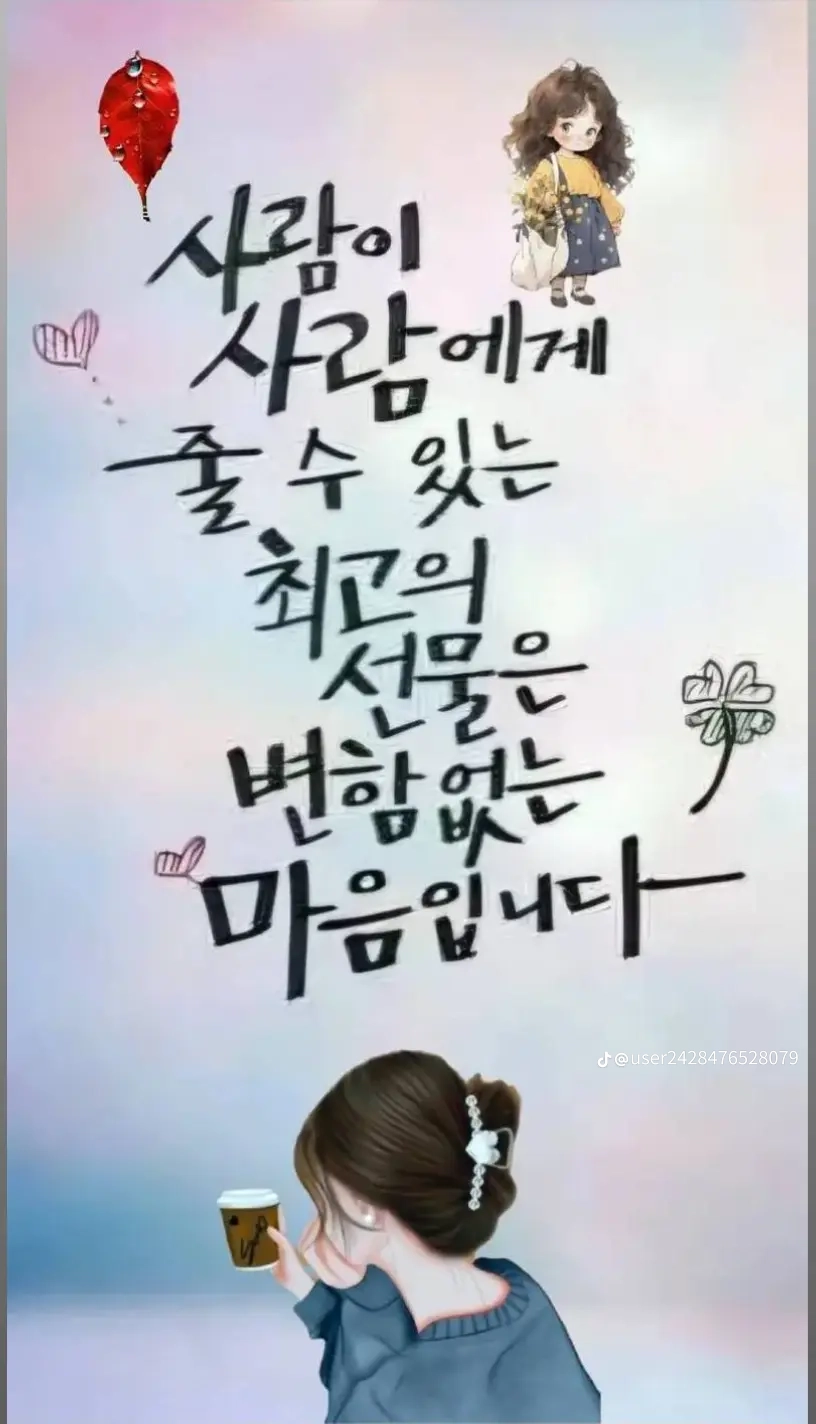 사람이
사람에게
줄 수 있는
최고의
선물은
변함없는
마음입니다
@user2428476528079